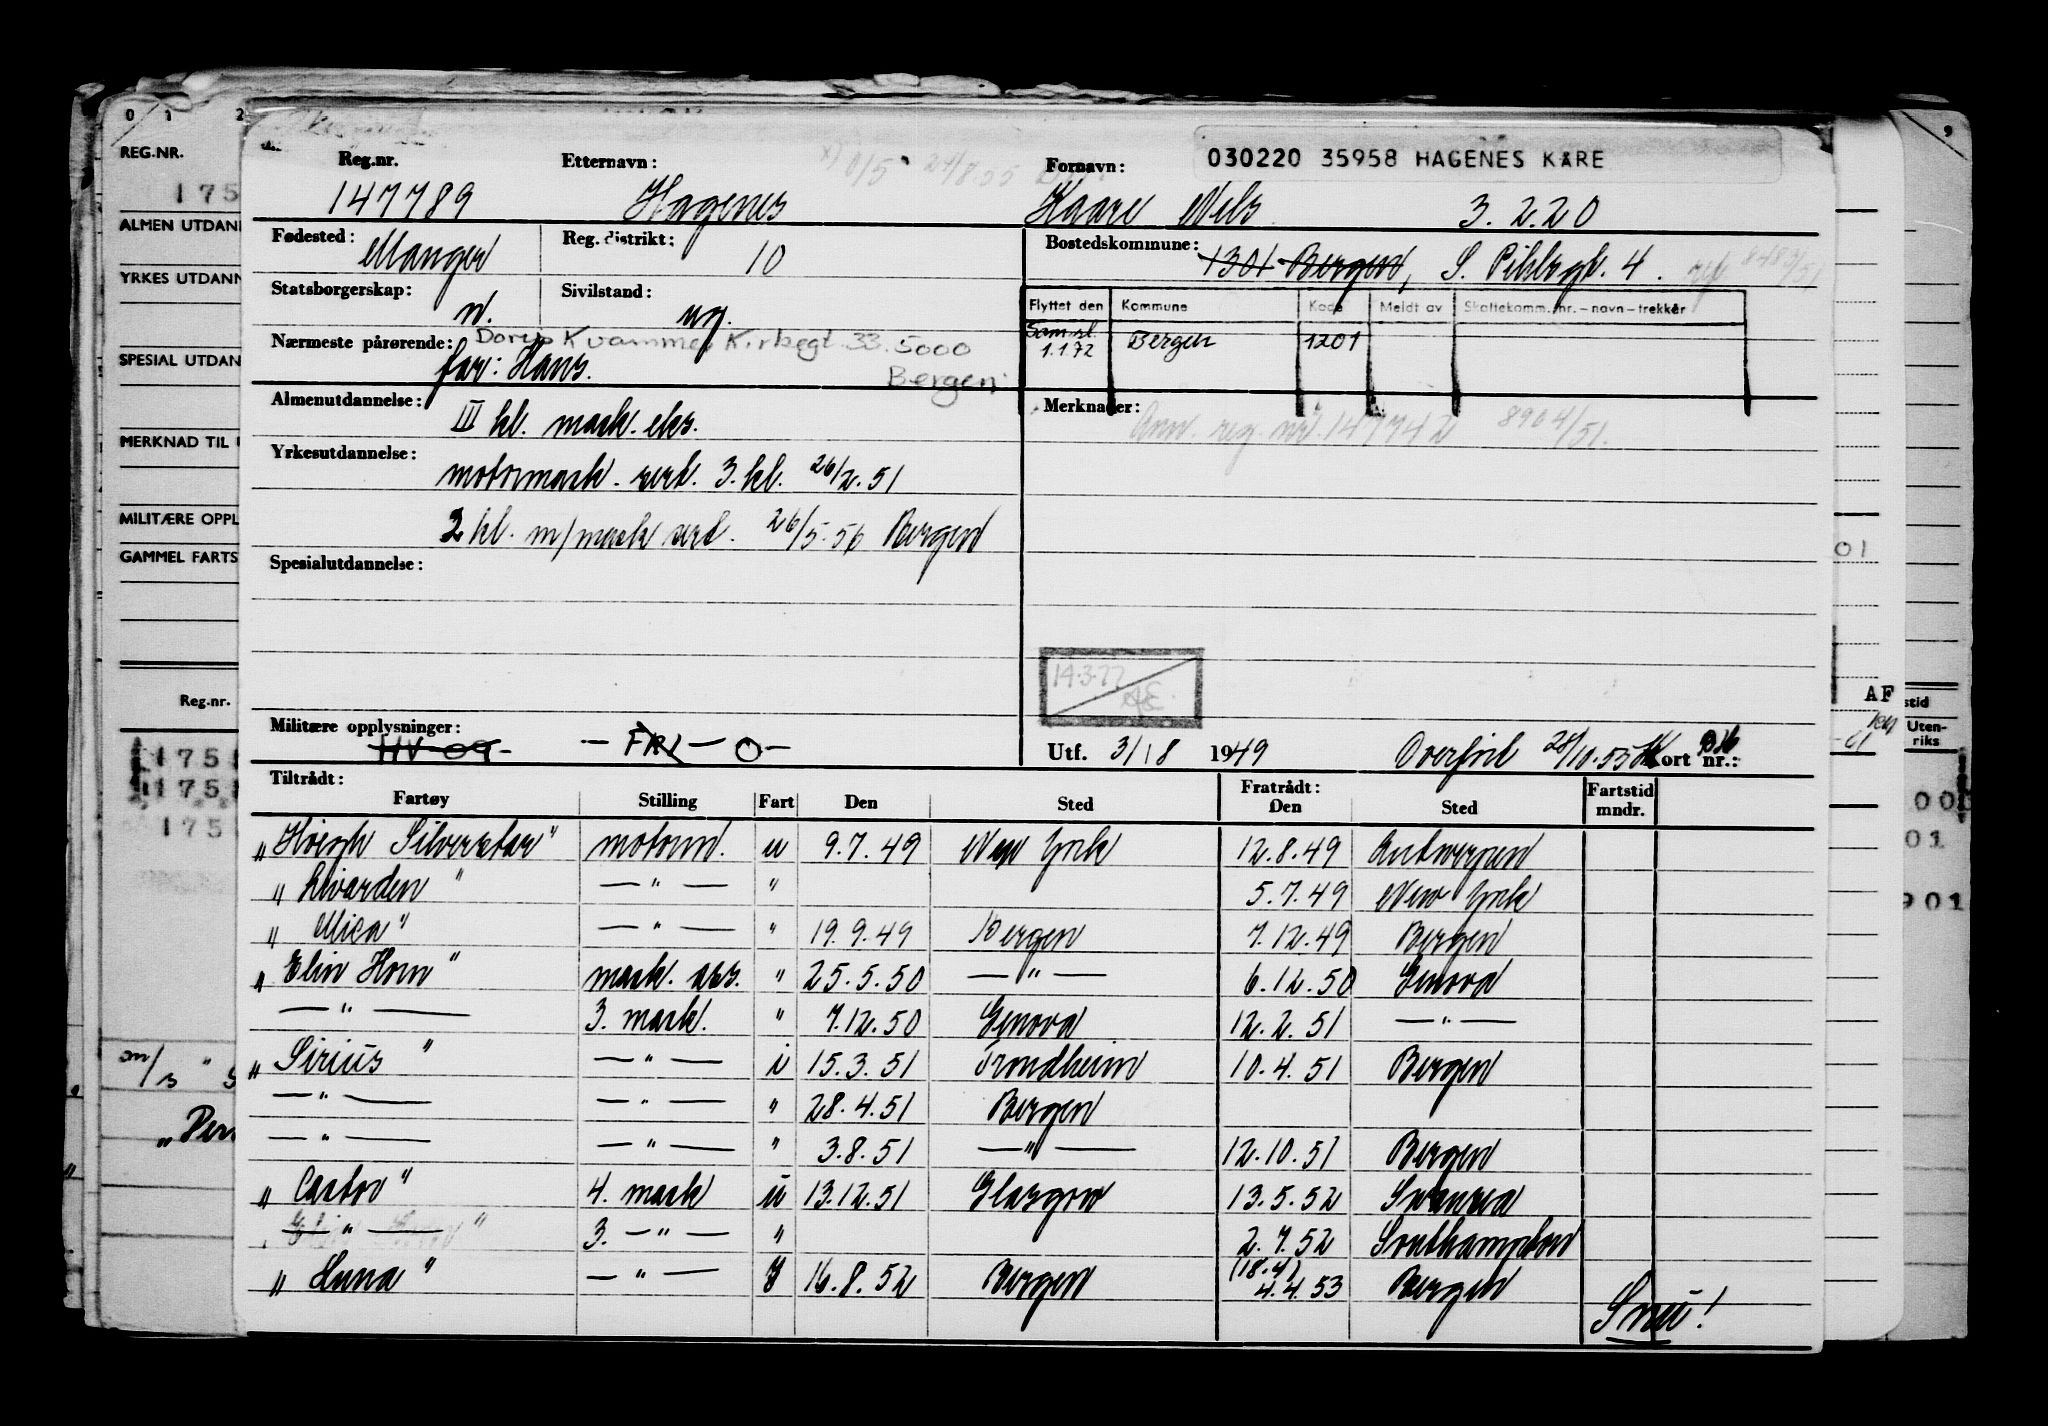 0 1 2
9
REG.NR.
175
ALMEN UTDAN
YRKES UTDANN
SPESIAL UTDAN
MERKNAD TIL
MILITÆRE OPPL
GAMMEL FARTS
Reg.nr.
175
175
175
030220 35958 HAGENES KÅRE
Reg.nr. Etternavn: Fornavn:
147789 Hagenes Kaare Nels 3.2.20
Fødested: Manger Reg. distrikt: 10 Bostedskommune: 1301 Bergen, S. Pihlsgt. 4.
Statsborgerskap: n. Sivilstand: ug.
Flyttet den Kommune Kode Meldt av Skattekomm. nr. – navn – trekkår
Saml. 1.1.72 Bergen 1201
Nærmeste pårørende: Dorys Kvammen Kirkegt. 33. 5000
far: Hans. Bergen
Almenutdannelse: III kl. mask. eks.
Merknader: Ann. reg. nr. 147742 8904/51.
Yrkesutdannelse:
motormask. sert. 3. kl. 26/2.51
2 kl. m/mask sert. 26/5-56 Bergen
Spesialutdannelse:
14.3.77
Militære opplysninger: HV-09- – FRL – O –
Utf. 3/8 1949 Overført 28/10.55 Kort nr.:
Tiltrådt: Fratrådt:
Fartøy Stilling Fart Den Sted Den Sted Fartstid mndr.
„Höegh Silverstar" motorm. u 9.7.49 New York 12.8.49 Antwerpen
„Livarden" — " — " 5.7.49 New York
„Mica" — " — " 19.9.49 Bergen 7.12.49 Bergen
„Elin Horn" mask. ass. " 25.5.50 — " — 6.12.50 Genova
— " — 3. mask. " 7.12.50 Genova 12.2.51 — " —
„Sirius" — " — i 15.3.51 Trondheim 10.4.51 Bergen
— " — — " — " 28.4.51 Bergen
— " — — " — " 3.8.51 — " — 12.10.51 Bergen
„Castor" 4. mask u 13.12.51 Glasgow 13.5.52 Swansea
— " — 3. — " — " 2.7.52 Southampton
„Luna" — " — I 16.8.52 Bergen (18.4) 4.4.53 Bergen
Snu!
AF
stid
Uten-
riks
00
01
901
01